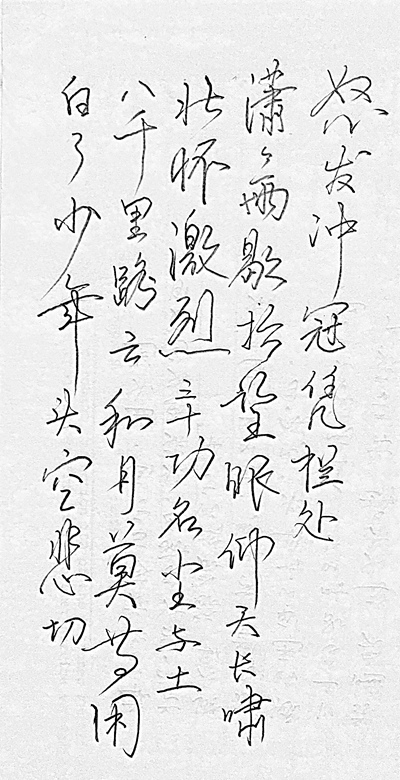 怒发冲冠凭栏处
潇々雨歇抬望眼仰天长啸
壮怀激烈三十功名尘与土
八千里路云和月莫等闲
白了少年头空悲切